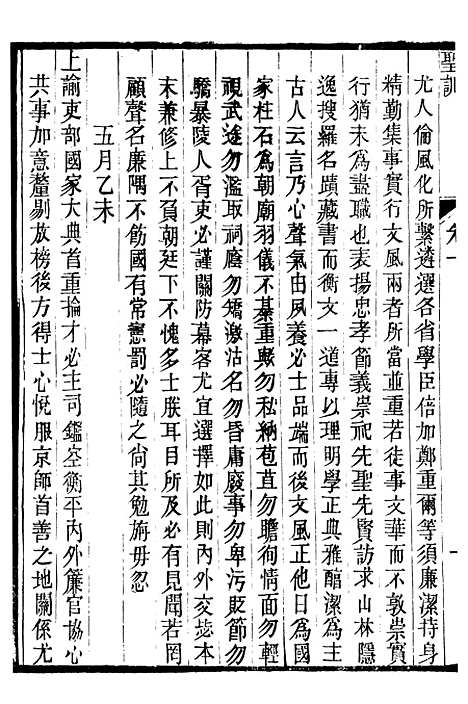 聖訓
尤人倫風化所繫遴選各省學臣倍加鄭重爾等須廉潔持身
精勤集事實行文風兩者所當並重若徒事文華而不敦崇實
行猶未爲盡職也表揚忠孝節義崇祀先聖先賢訪求山林隱
逸搜羅名蹟藏書而衡文一道專以理明學正典雅醇潔爲主
古人云言乃心聲氣由夙養必士品端而後文風正他日爲國
家柱石爲朝廟羽儀不綦重歟勿私納苞苴勿瞻徇情面勿輕
視武途勿濫取祠廕勿矯激沽名勿昏庸廢事勿卑污貶節勿
驕暴陵人胥吏必謹關防幕客尤宜選擇如此則內外交毖本
末兼修上不負朝廷下不愧多士朕耳目所及必有見聞若罔
顧聲名廉隅不飭國有常憲罰必隨之尙其勉旃毋忽
五月乙未
上諭吏部國家大典首重掄才必主司鑑空衡平內外簾官協心
共事加意釐剔放榜後方得士心悅服京師首善之地關係尤